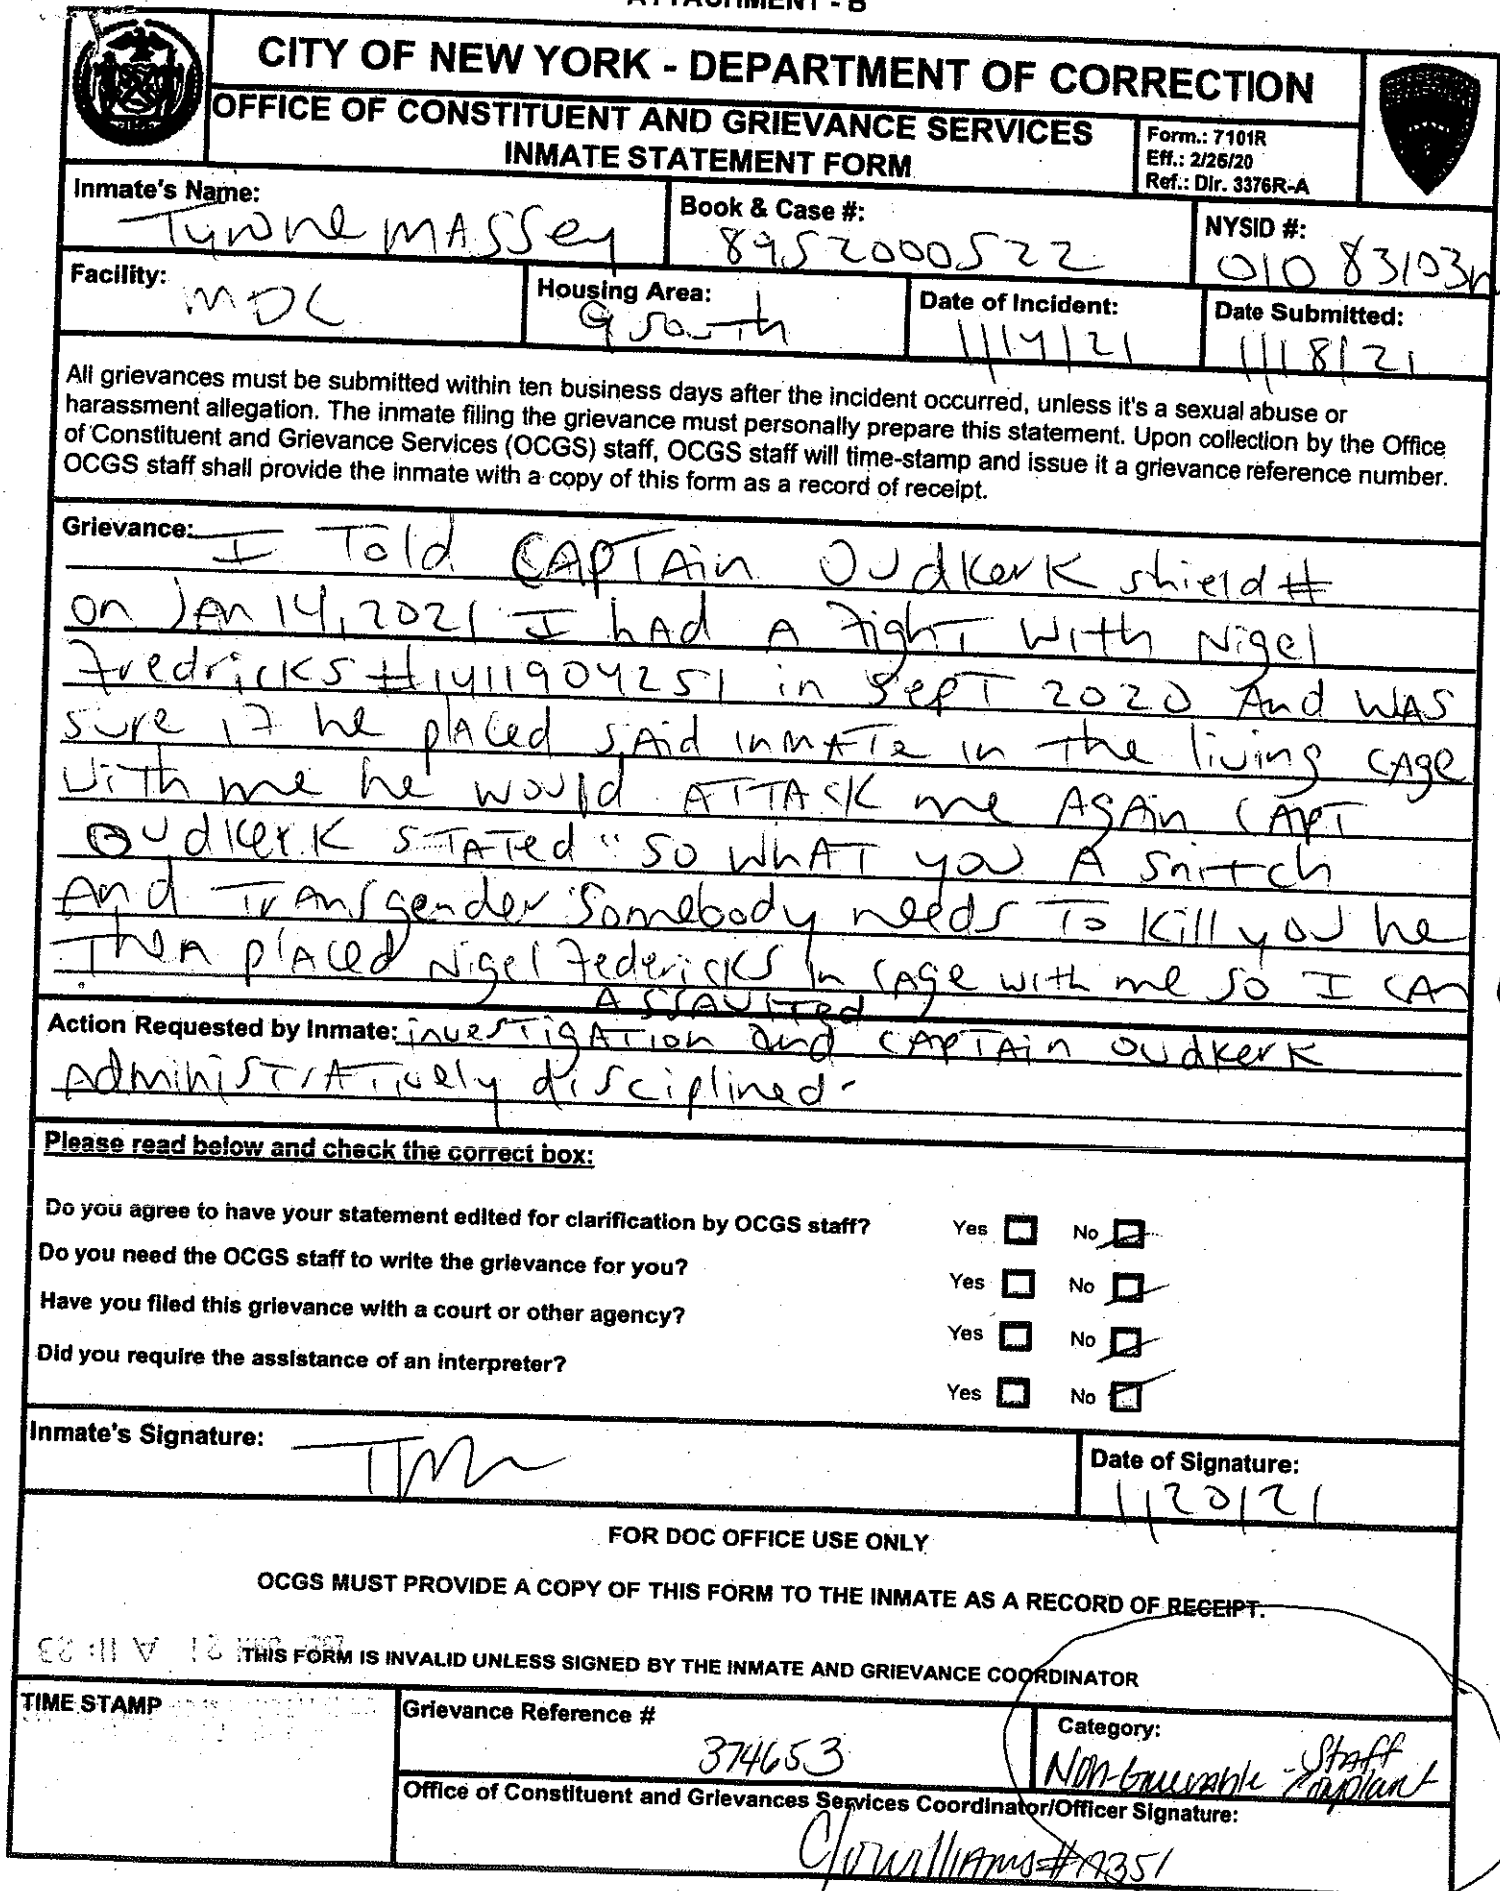 ATTACHMENT - B
CITY OF NEW YORK - DEPARTMENT OF CORRECTION
OFFICE OF CONSTITUENT AND GRIEVANCE SERVICES
INMATE STATEMENT FORM
Form.: 7101R
Eff.: 2/25/20
Ref.: Dir. 3376R-A
Inmate's Name:
Tyrone MASSey
Book & Case #:
8952000522
NYSID #:
01083103m
Facility:
MDC
Housing Area:
9 south
Date of Incident:
1/14/21
Date Submitted:
1/18/21
All grievances must be submitted within ten business days after the incident occurred, unless it's a sexual abuse or
harassment allegation. The inmate filing the grievance must personally prepare this statement. Upon collection by the Office
of Constituent and Grievance Services (OCGS) staff, OCGS staff will time-stamp and issue it a grievance reference number.
OCGS staff shall provide the inmate with a copy of this form as a record of receipt.
Grievance: I Told CAPTAin OUdKerK shield #
on JAn 14, 2021 I hAd A FighT With Nigel
FredricKS #1411904251 in SepT 2020 And WAS
sure if he plAced sAid inmATe in The living cAge
with me he would ATTACK me AgAin CAPT
OUdKerK STATed "So whAT you A Snitch
And TrAnsgender Somebody needs To Kill you he
Then plAced Nigel FedericKs in cAge with me so I CAn
ASSAUlTed
Action Requested by Inmate: invesTigATion and CAPTAin OUdKerK
AdminiSTrATively disciplined.
Please read below and check the correct box:
Do you agree to have your statement edited for clarification by OCGS staff? Yes No
Do you need the OCGS staff to write the grievance for you? Yes No
Have you filed this grievance with a court or other agency? Yes No
Did you require the assistance of an interpreter? Yes No
Inmate's Signature:
TM
Date of Signature:
1/20/21
FOR DOC OFFICE USE ONLY
OCGS MUST PROVIDE A COPY OF THIS FORM TO THE INMATE AS A RECORD OF RECEIPT.
THIS FORM IS INVALID UNLESS SIGNED BY THE INMATE AND GRIEVANCE COORDINATOR
TIME STAMP
Grievance Reference #
374653
Category:
Non-Grievable - Staff
Complaint
Office of Constituent and Grievances Services Coordinator/Officer Signature: